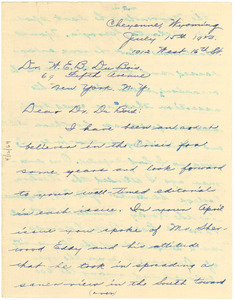 Cheyenne, Wyoming
July 15th 1923.
1012 West 18th St
Dr. W. E. B. Du Bois
69 Fifth Avenue
New York N. Y.
Dear Dr. Du Bois:
I have been an
believer in the Crisis for
some years and look forward
to your well-timed editorial
in each issue. In your April
issue you spoke of Mr. Sher-
wood Eddy and his attitude
that he took in spreading a
saner view in the South toward
(over)